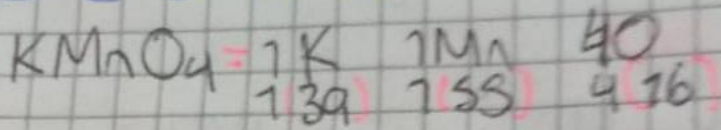 KMnO4 = 1K 1Mn 4O
1(39) 1(55) 4(16)